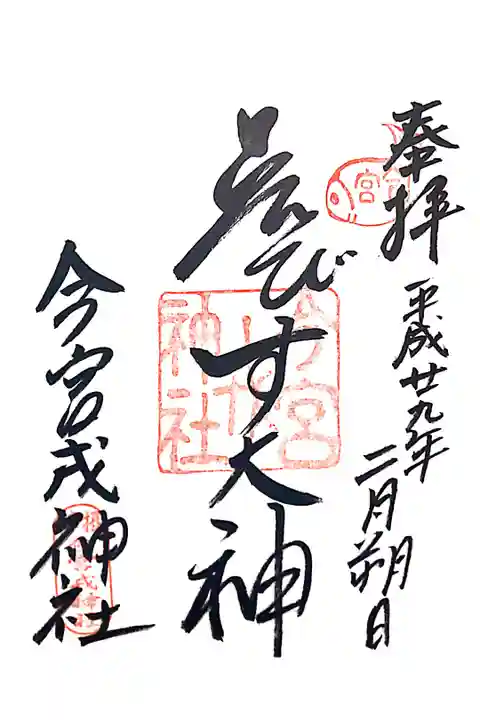 奉拝
平成廿九年
二月朔日
ゑびす大神
今宮戎神社
今宮
今宮戎神社